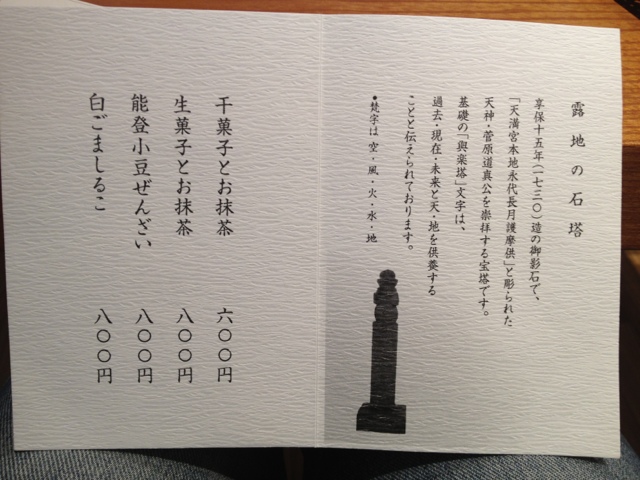 露地の石塔
享保十五年(一七三〇)造の御影石で、
「天満宮本地永代長月護摩供」と彫られた
天神・菅原道真公を崇拝する宝塔です。
基礎の「與楽塔」文字は、
過去・現在・未来と天・地を供養する
ことと伝えられております。
●梵字は 空・風・火・水・地
干菓子とお抹茶 六〇〇円
生菓子とお抹茶 八〇〇円
能登小豆ぜんざい 八〇〇円
白ごましるこ 八〇〇円